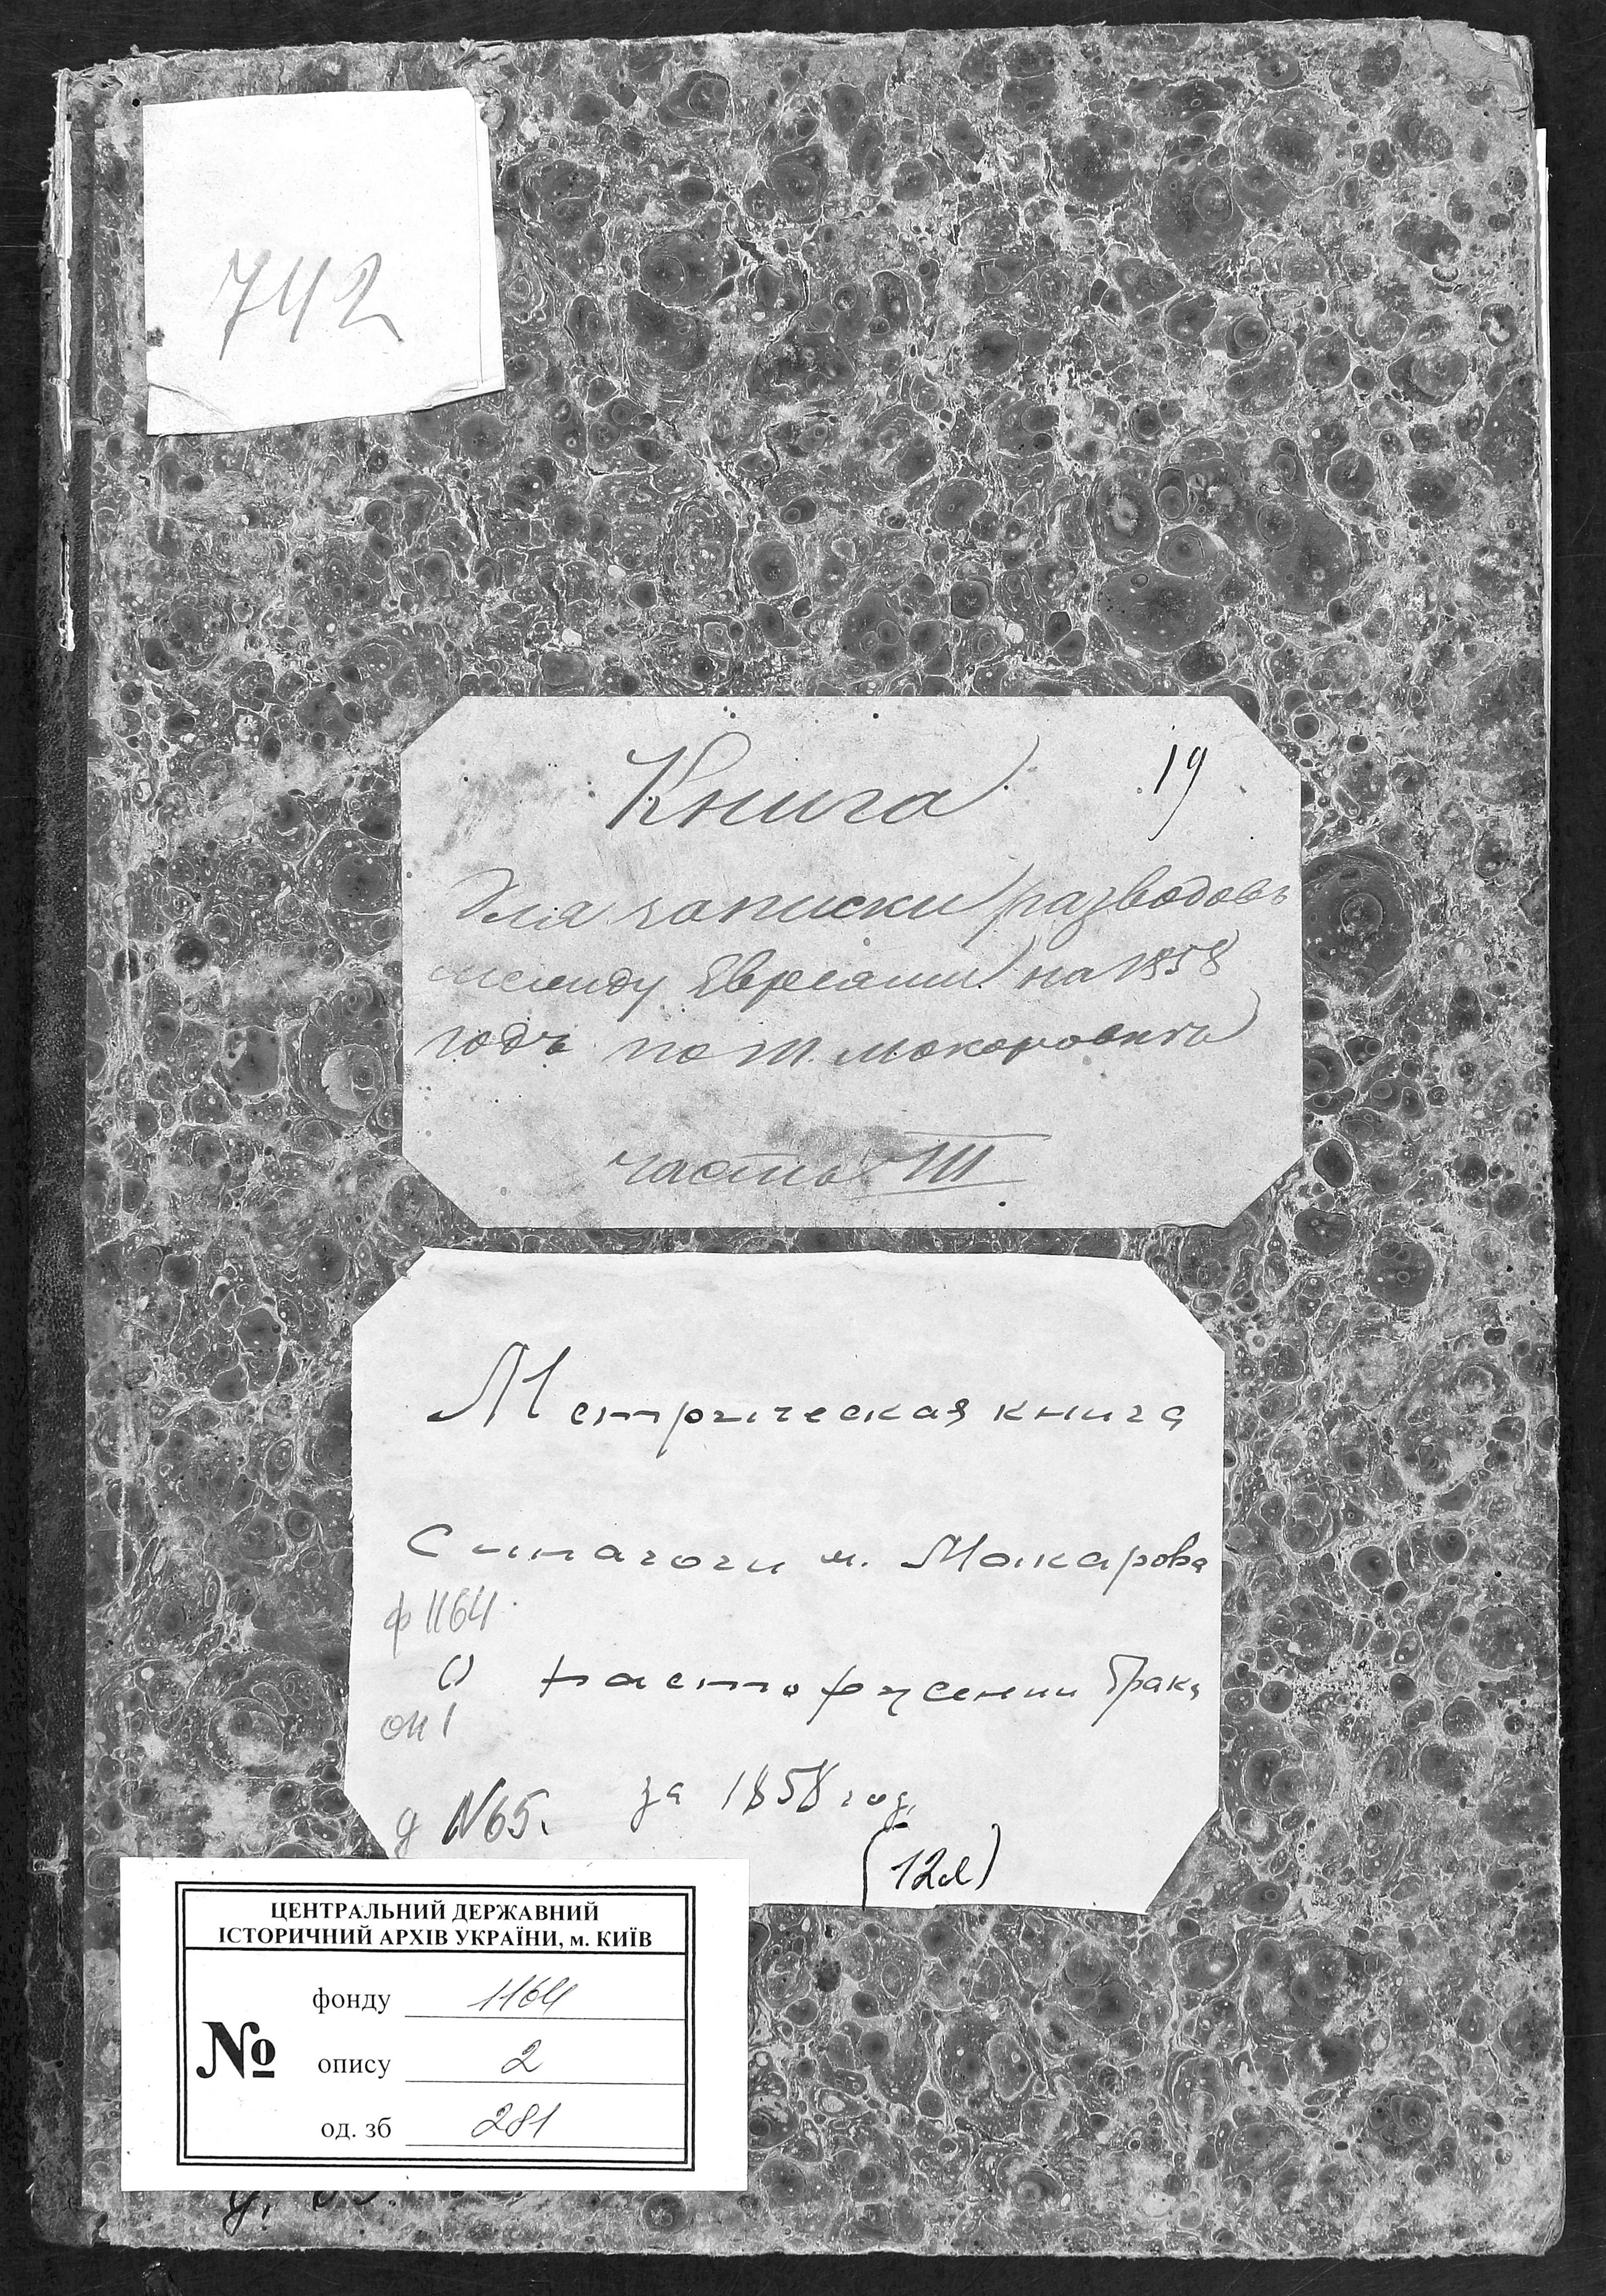 742
Книга 19
Для записки разводовъ
между Евреями на 1858
годъ по м. Макаровъ
часть III
Метрическая книга
Синагоги м. Макарова
ф 1164
О расторжении брака
оп 1
д N65. за 1858 год.
(12л)
ЦЕНТРАЛЬНИЙ ДЕРЖАВНИЙ
ІСТОРИЧНИЙ АРХІВ УКРАЇНИ, м. КИЇВ
фонду 1164
№ опису 2
од. зб 281